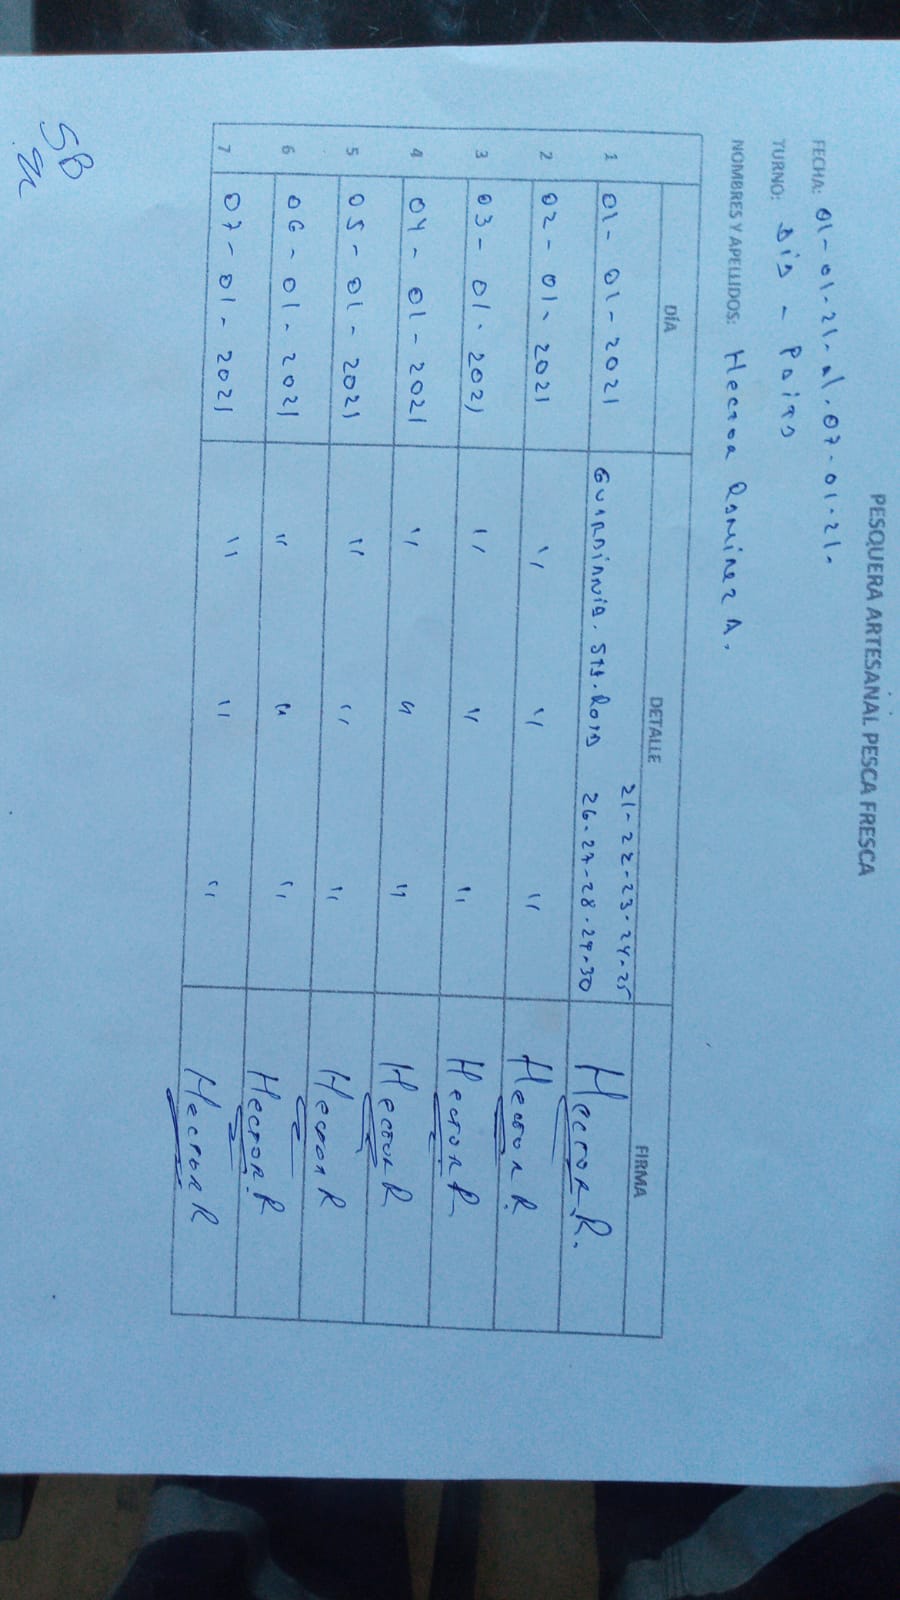 PESQUERA ARTESANAL PESCA FRESCA
FECHA: 01-01-21. al. 07-01-21.
TURNO: Dia -
NOMBRES Y APELLIDOS: Hector Ramirez A.
DÍA DETALLE FIRMA
21-22-23-24-25
1 01-01-2021 Guardiania. Sta. Rosa 26-27-28-29-30 Hector.R.
2 02-01-2021 " " " Hector R.
3 03-01-2021 " " " Hector R
4 04-01-2021 " " " Hector R
5 05-01-2021 " " " Hector R
6 06-01-2021 " " " Hector.R
7 07-01-2021 " " " Hector R
SB